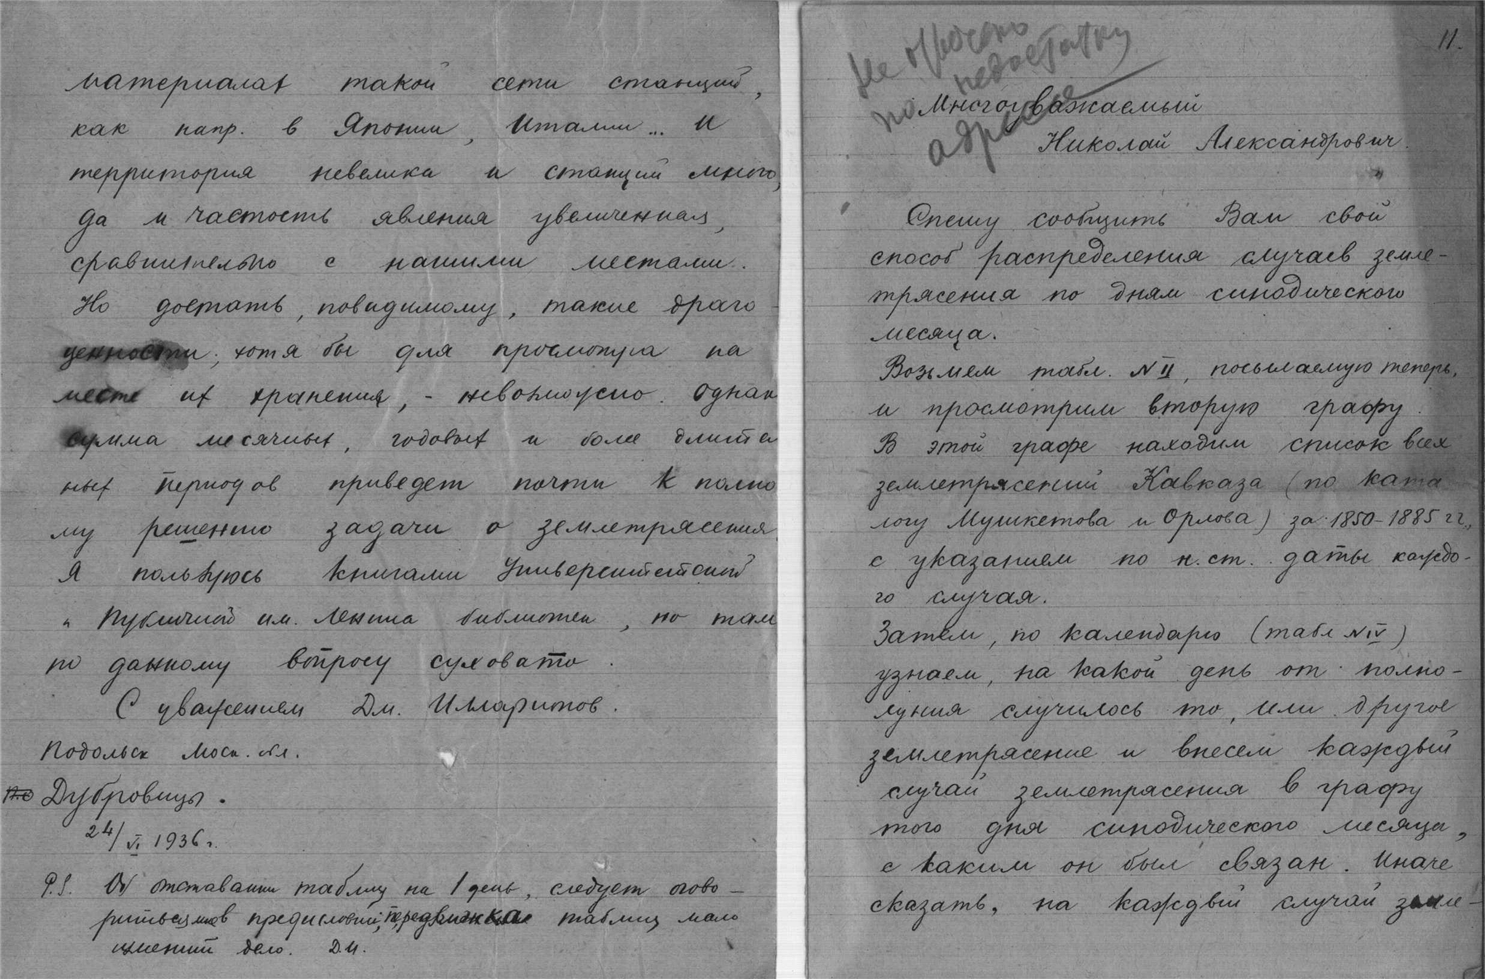 материалах такой сети станций,
как напр. в Японии, Италии... И
территория невелика и станций много,
да и частость явления увеличенная,
сравнительно с нашими местами.
Но достать, повидимому, такие драго-
ценности, хотя бы для просмотра на
месте их хранения, - невозможно. Однак
сумма месячных, годовых и более длите
ных периодов приведет почти к полно
му решению задачи о землетрясения
Я пользуюсь книгами Университетской
и Публичной им. Ленина библиотек, но там
по данному вопросу суховато.
С уважением Дм. Илларионов.
Подольск Моск. обл.
Дубровицы.
24/VI 1936 г.
P.S. Об отставании таблиц на 1 день, следует огово-
риться в предисловии, передвижка таблиц мало
изменит дело. Д.И.
11.
Не отвечень
по недостатку
адреса
Многоуважаемый
Николай Александрович.
Спешу сообщить Вам свой
способ распределения случаев земле-
трясения по дням синодического
месяца.
Возьмем табл. N II, посылаемую теперь,
и просмотрим вторую графу.
В этой графе находим список всех
землетрясений Кавказа (по ката
логу Мушкетова и Орлова) за 1850-1885 гг.,
с указанием по н.ст. даты каждо-
го случая.
Затем, по календарю (табл N IV)
узнаем, на какой день от полно-
луния случилось то, или другое
землетрясение и внесем каждый
случай землетрясения в графу
того дня синодического месяца,
с каким он был связан. Иначе
сказать, на каждый случай земле-